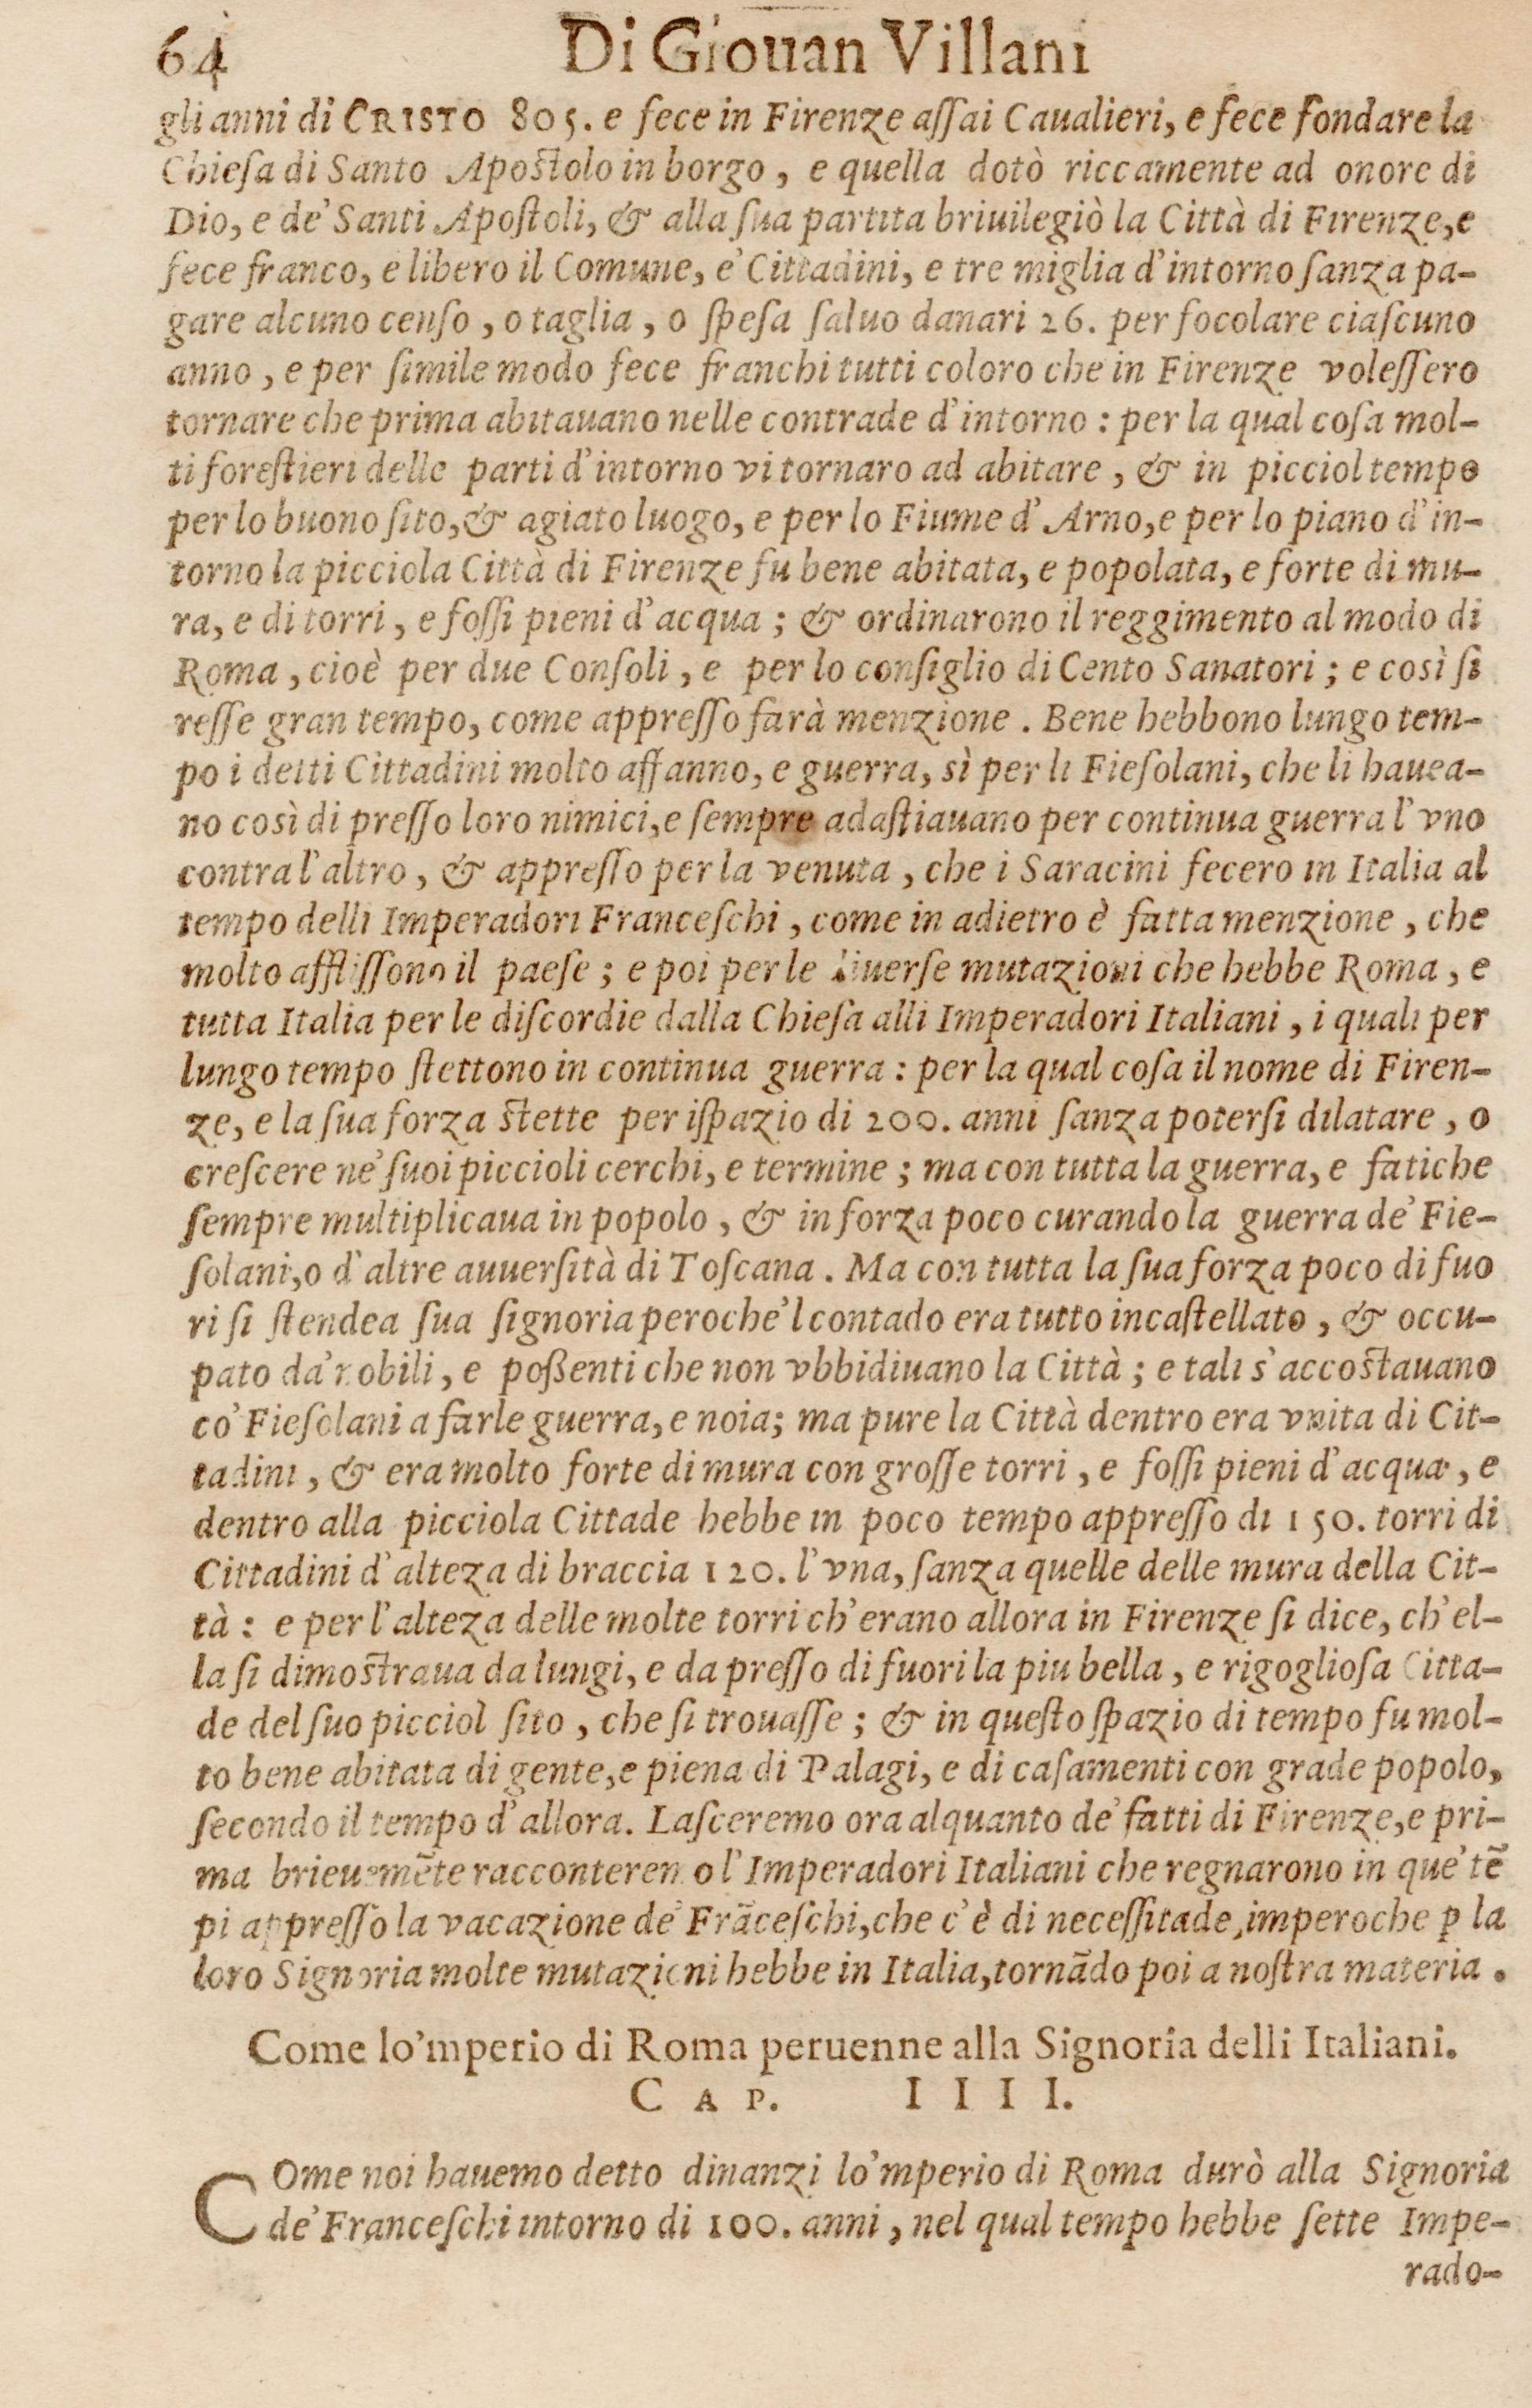 64 Di Giouan Villani
gli anni di CRISTO 805. e fece in Firenze aſſai Caualieri, e fece fondare la
Chieſa di Santo Apostolo in borgo, e quella dotò riccamente ad onore di
Dio, e de' Santi Apoſtoli, & alla ſua partita briuilegiò la Città di Firenze, e
fece franco, e libero il Comune, e' Cittadini, e tre miglia d'intorno ſanza pa-
gare alcuno cenſo, o taglia, o ſpeſa ſaluo danari 26. per focolare ciaſcuno
anno, e per ſimile modo fece franchi tutti coloro che in Firenze voleſſero
tornare che prima abitauano nelle contrade d'intorno: per la qual coſa mol-
ti foreſtieri delle parti d'intorno vi tornaro ad abitare, & in picciol tempo
per lo buono ſito, & agiato luogo, e per lo Fiume d'Arno, e per lo piano d'in-
torno la picciola Città di Firenze fu bene abitata, e popolata, e forte di mu-
ra, e di torri, e foſſi pieni d'acqua; & ordinarono il reggimento al modo di
Roma, cioè per due Conſoli, e per lo conſiglio di Cento Sanatori; e così ſi
reſſe gran tempo, come appreſſo farà menzione. Bene hebbono lungo tem-
po i detti Cittadini molto affanno, e guerra, sì per li Fieſolani, che li hauea-
no così di preſſo loro nimici, e ſempre adaſtiauano per continua guerra l'vno
contra l'altro, & appreſſo per la venuta, che i Saracini fecero in Italia al
tempo delli Imperadori Franceſchi, come in adietro è fatta menzione, che
molto affliſſono il paeſe; e poi per le diuerſe mutazioni che hebbe Roma, e
tutta Italia per le diſcordie dalla Chieſa alli Imperadori Italiani, i quali per
lungo tempo ſtettono in continua guerra: per la qual coſa il nome di Firen-
ze, e la ſua forza stette per iſpazio di 200. anni ſanza poterſi dilatare, o
creſcere ne' ſuoi piccioli cerchi, e termine; ma con tutta la guerra, e fatiche
ſempre multiplicaua in popolo, & in forza poco curando la guerra de' Fie-
ſolani, o d'altre auuerſità di Toſcana. Ma con tutta la ſua forza poco di fuo
ri ſi ſtendea ſua ſignoria peroche'l contado era tutto incaſtellato, & occu-
pato da' nobili, e poßenti che non vbbidiuano la Città; e tali s'accostauano
co' Fieſolani a farle guerra, e noia; ma pure la Città dentro era vnita di Cit-
tadini, & era molto forte di mura con groſſe torri, e foſſi pieni d'acqua, e
dentro alla picciola Cittade hebbe in poco tempo appreſſo di 150. torri di
Cittadini d'alteza di braccia 120. l'vna, ſanza quelle delle mura della Cit-
tà: e per l'alteza delle molte torri ch'erano allora in Firenze ſi dice, ch'el-
la ſi dimostraua da lungi, e da preſſo di fuori la piu bella, e rigoglioſa Citta-
de del ſuo picciol ſito, che ſi trouaſſe; & in queſto ſpazio di tempo fu mol-
to bene abitata di gente, e piena di Palagi, e di caſamenti con grade popolo,
ſecondo il tempo d'allora. Laſceremo ora alquanto de' fatti di Firenze, e pri-
ma brieuemēte racconteremo l'Imperadori Italiani che regnarono in que' tē
pi appreſſo la vacazione de' Frāceſchi, che c'è di neceſſitade, imperoche ꝑ la
loro Signoria molte mutazioni hebbe in Italia, tornādo poi a noſtra materia.
Come lo'mperio di Roma peruenne alla Signoria delli Italiani.
CAP. IIII.
COme noi hauemo detto dinanzi lo'mperio di Roma durò alla Signoria
de' Franceſchi intorno di 100. anni, nel qual tempo hebbe ſette Impe-
rado-